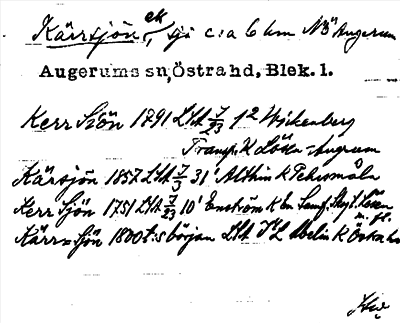 Kärrsjön, ek sjö c:a 6 km NÖ Augerum
Augerums sn, Östra hd, Blek. l.
Kerr Siön 1791 LSA 7/23 1² Wickenberg
Transp. K Lösen-Augerum
Kärsjön 1857 LSA 7/3 31' Althin K Petersmåla
Kerr Sjön 1751 LSA 7/23 10' Enström K
Kärr=Sjön 1800t:s början LSA Abelin K Östra hd